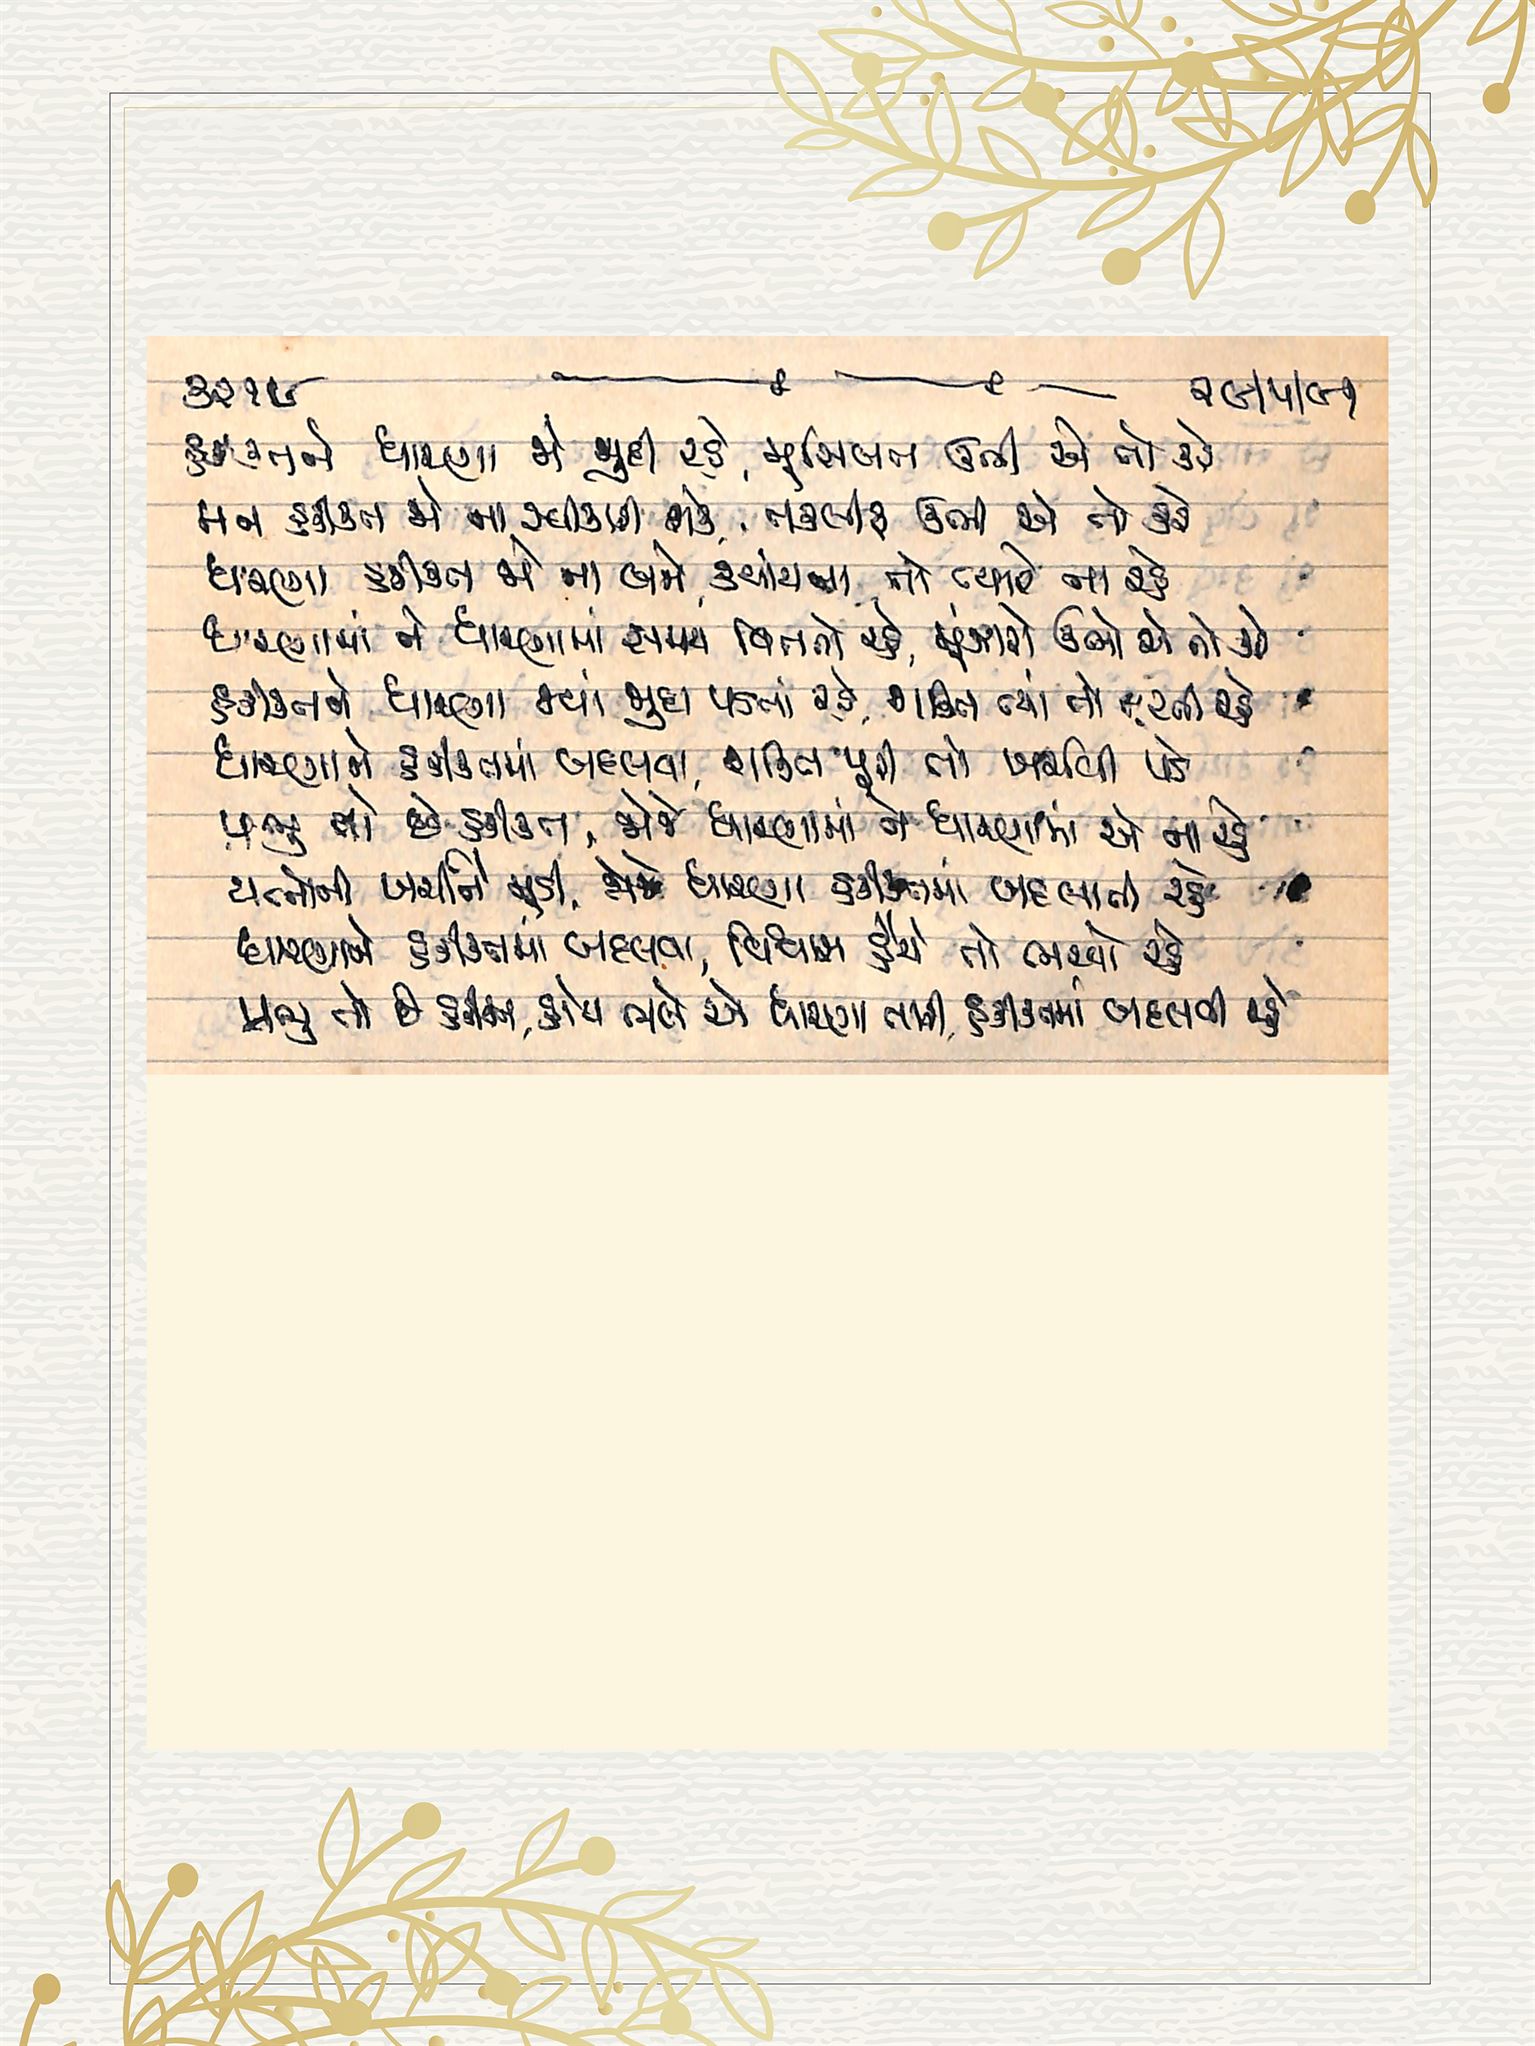 ૩૨૧૯ ૨૯/૫/૯૧
હકીકતને ધારણા જો જુદી રહે, મુસિબત ઉભી એ તો કરે
મન હકીકત જો ના સ્વીકારી શકે, તકલીફ ઉભી એ તો કરે
ધારણા હકીકત જો ના બને, ક્યાંયના તો ત્યારે ના રહે
ધારણામાં ને ધારણામાં સમય વિતતો રહે, મૂંઝારો ઉભો એ તો કરે
હકીકતને ધારણા જ્યાં જુદા પડતાં રહે, શક્તિ ત્યાં તો તૂટતી રહે
ધારણાને હકીકતમાં બદલવા, શક્તિ પૂરી તો ખરચવી પડે
પ્રભુ તો છે હકીકત, જોજે ધારણામાં ને ધારણામાં એ ના રહે
યત્નોની ખર્ચીને મૂડી, જોજે ધારણા હકીકતમાં બદલાતી રહે
ધારણાને હકીકતમાં બદલવા, વિશ્વાસ હૈયે તો ભરવો રહે
પ્રભુ તો છે હકીકત, હોય ભલે એ ધારણા તારી, હકીકતમાં બદલવી રહે